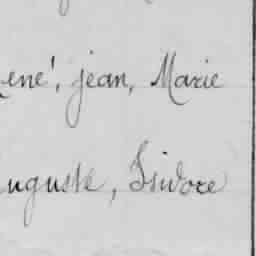 ené, jean, Marie
uguste, Isidore